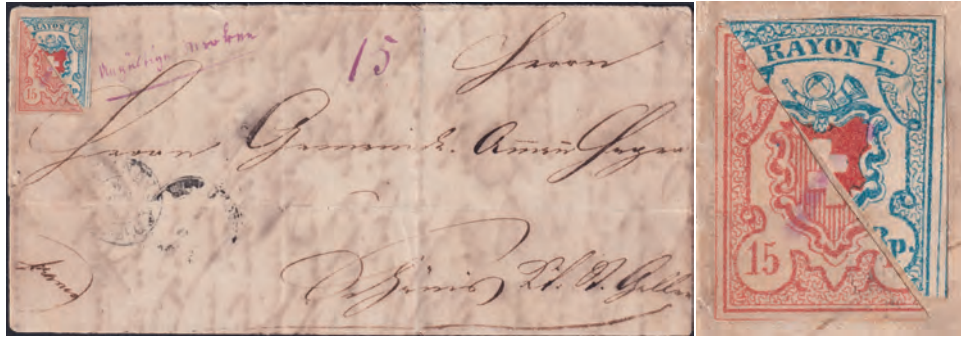 RAYON I.
15
Ungültige Marken
15
Herrn
Herrn Gemeind. Amann
Schänis Kt. St. Gallen
franco
RAYON I.
p.
15